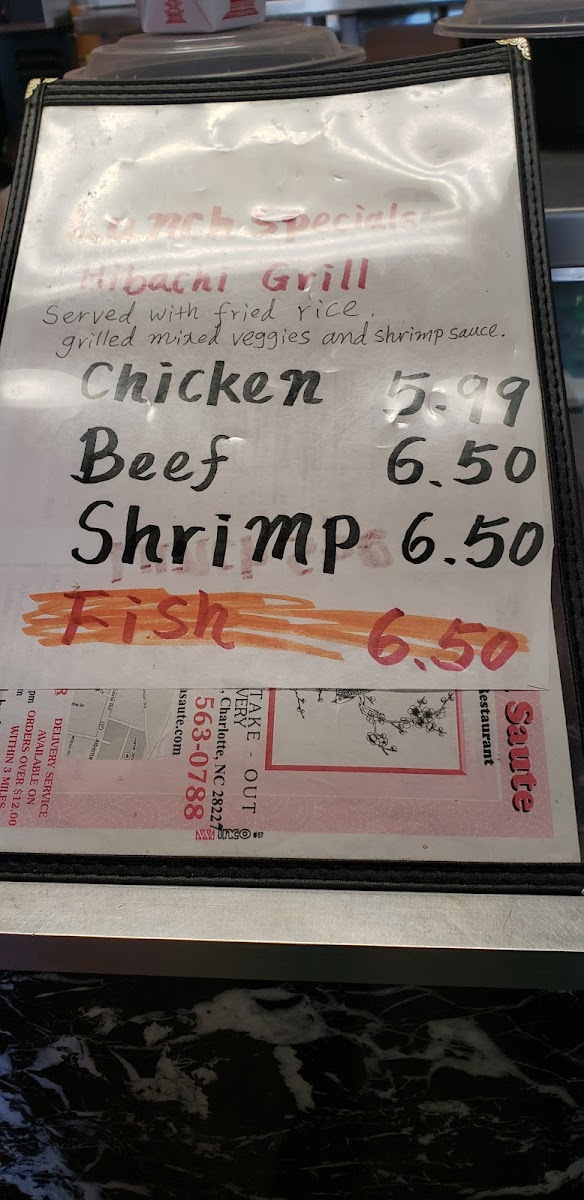 Lunch Specials
Hibachi Grill
Served with fried rice,
grilled mixed veggies and shrimp sauce.
Chicken 5.99
Beef 6.50
Shrimp 6.50
Fish 6.50
Saute
Restaurant
TAKE - OUT
, Charlotte, NC 28227
563-0788
asaute.com
DELIVERY SERVICE
AVAILABLE ON
ORDERS OVER $12.00
WITHIN 3 MILES